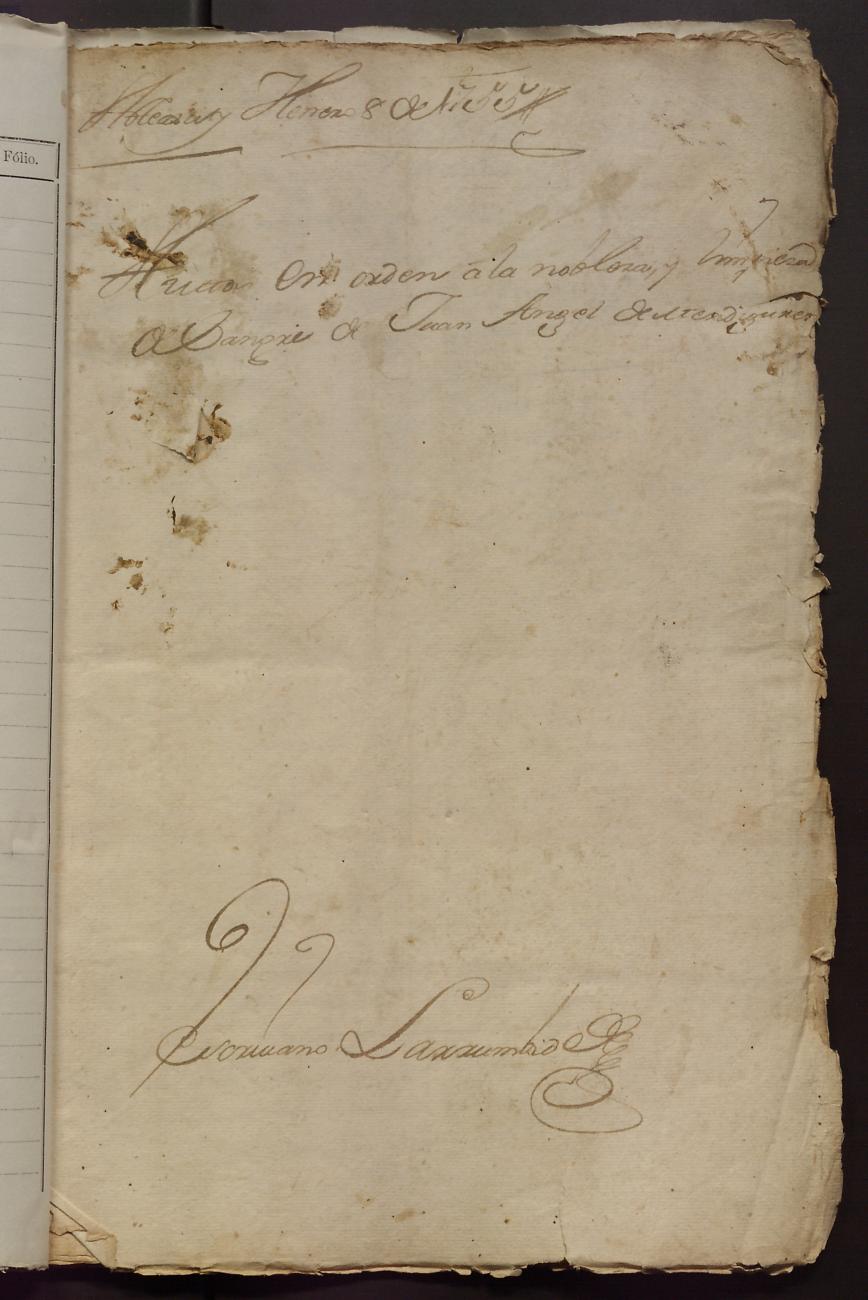 Fólio.
y Henero 8 de
Autos En orden a la nobleza, y limpieza
de Sangre de Juan Angel de
Escriuano Larrumbide